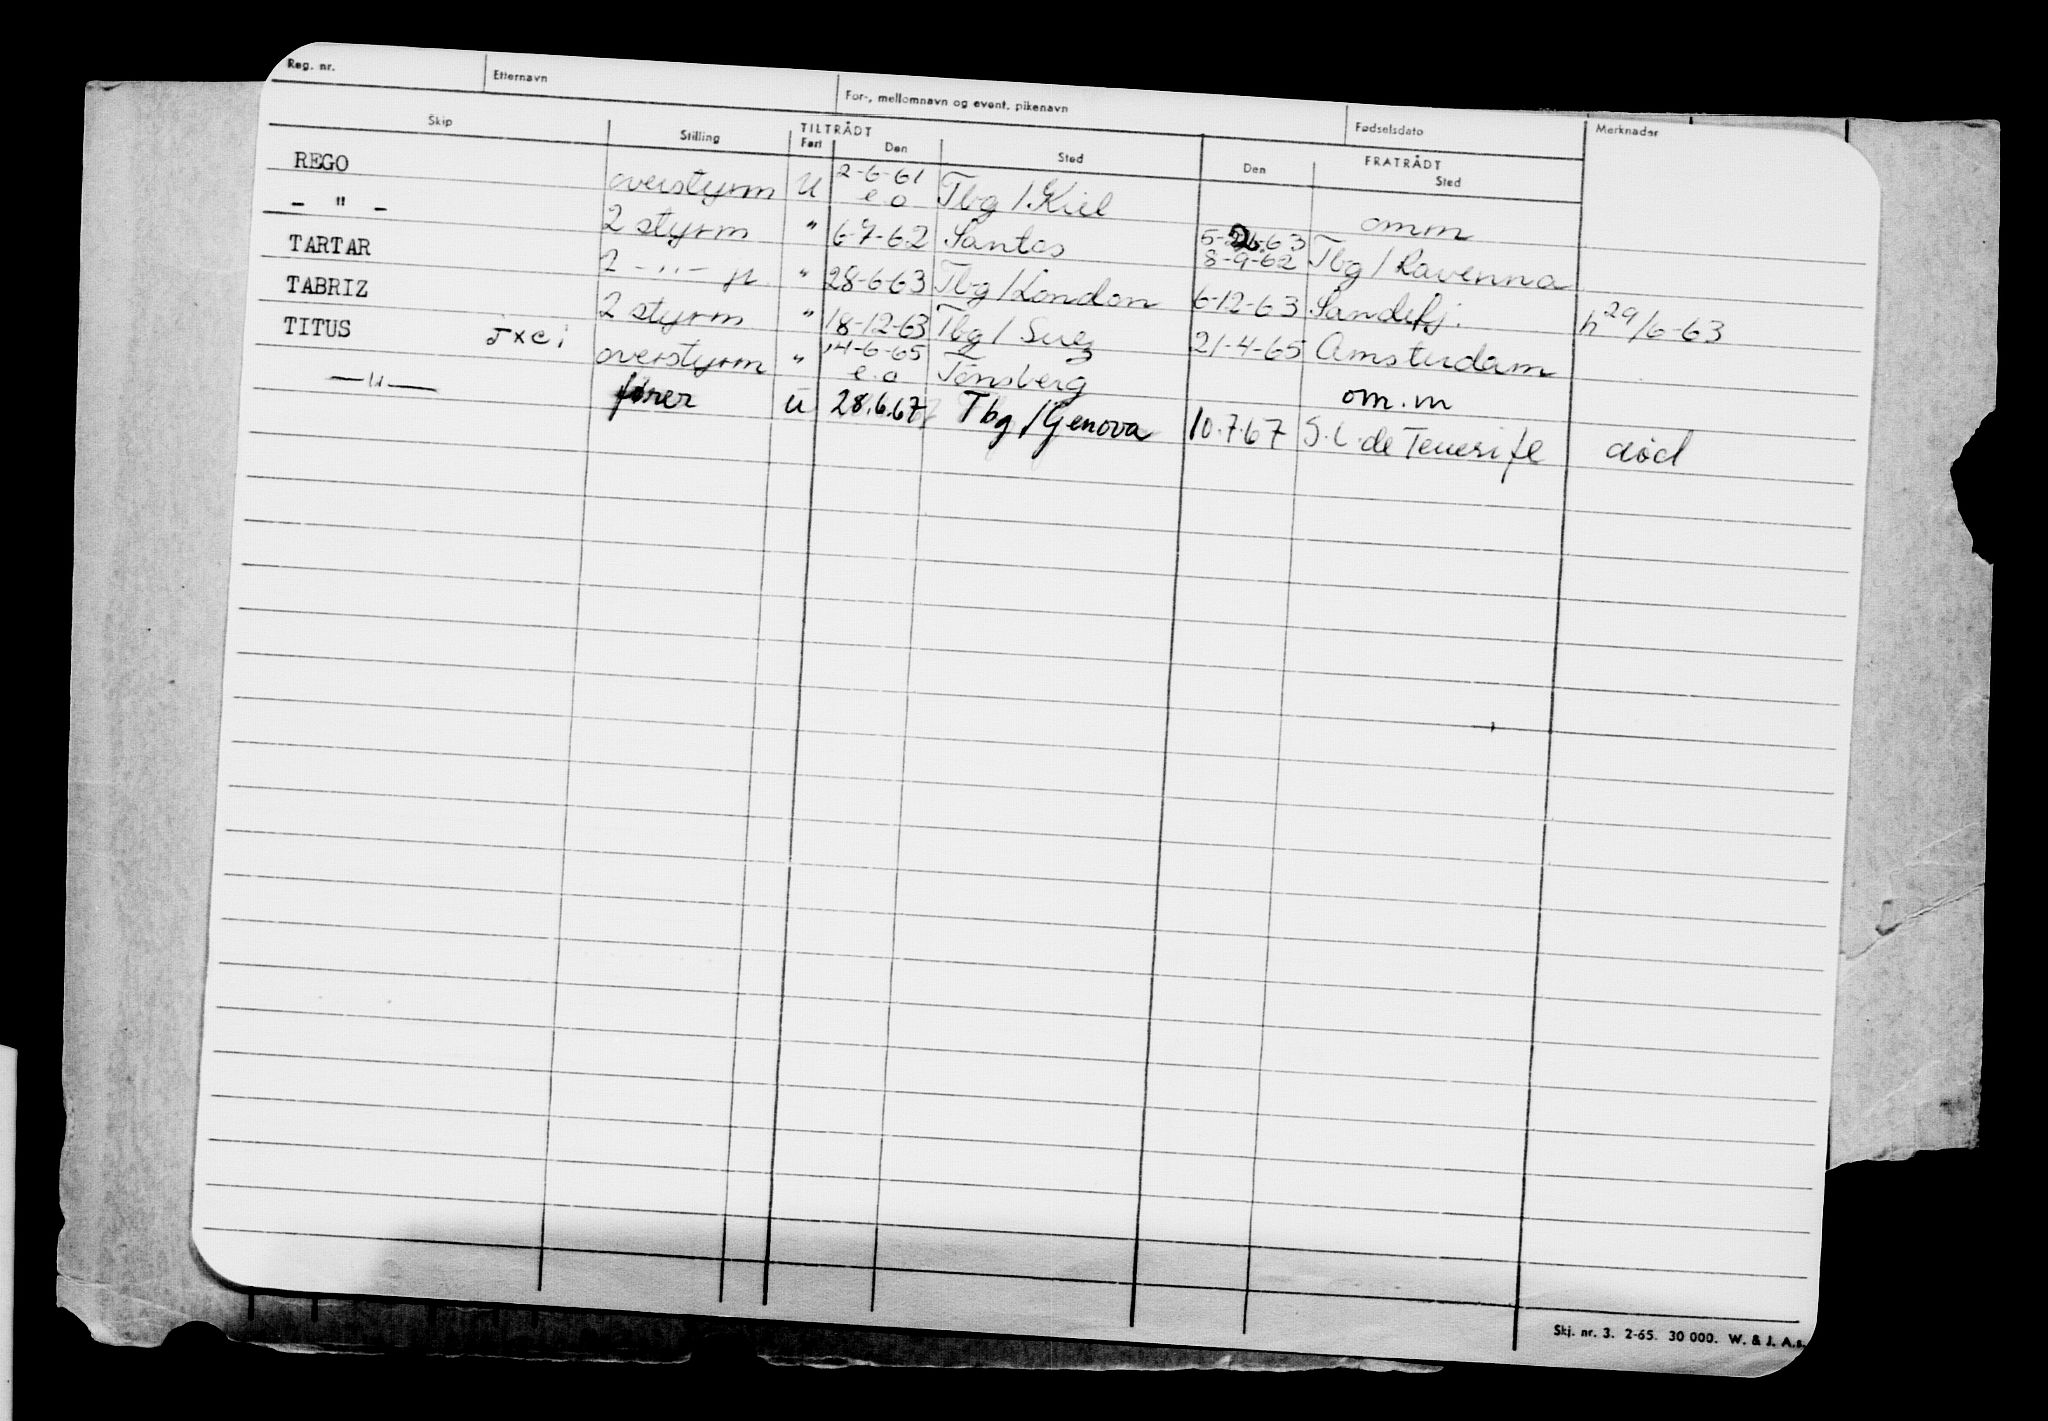 Reg. nr. Etternavn For-, mellomnavn og event. pikenavn Fødselsdato Merknader
Skip Stilling TILTRÅDT FRATRÅDT
Fart Den Sted Den Sted
REGO overstyrm U 2-6-61 e.o Tbg / Kiel omm
- " - 2 styrm " 6-7-62 Santos 8-9-62 Tbg / Ravenna
TARTAR 2 -"- jr. " 28-6-63 Tbg / London 6-12-63 Sandefj. h 29/6-63
TABRIZ 2 styrm " 18-12-63 Tbg / Suez 21-4-65 Amsterdam
TITUS JXCI overstyrm " 14-6-65 e.o Tønsberg om.m
-"- fører u 28.6.67 Tbg / Genova 10.7.67 S.C. de Tenerife død
Skj. nr. 3. 2-65. 30 000. W. & J. A.s.